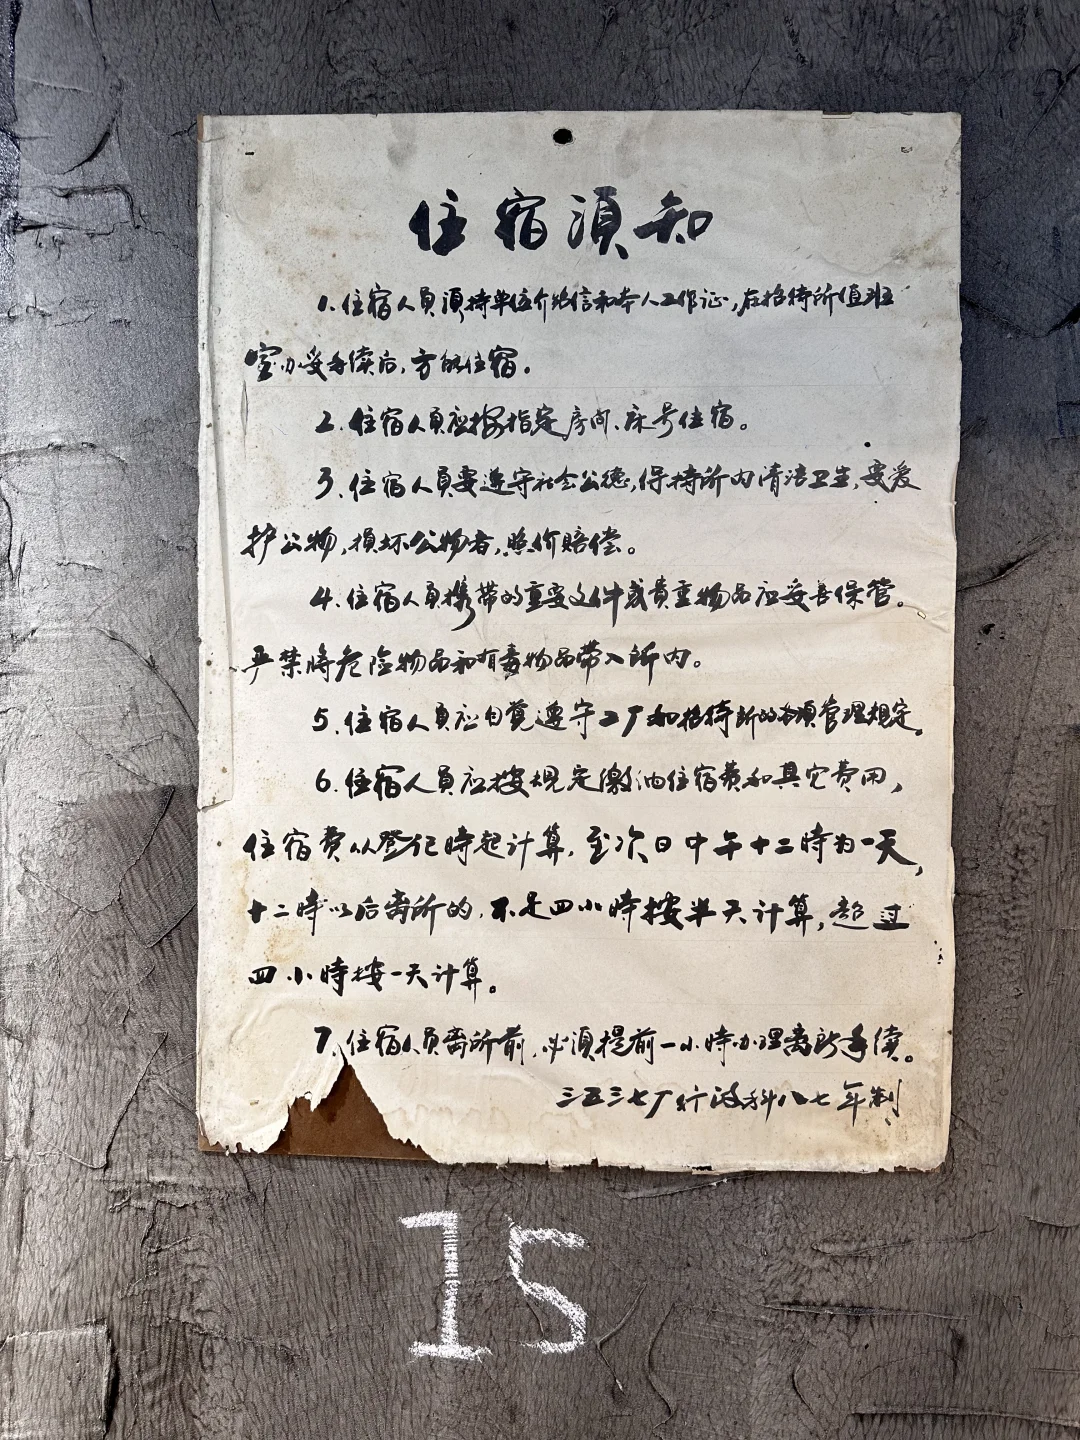 住宿须知
1.住宿人员须持单位介绍信和本人工作证,在招待所值班
室办妥手续后,方能住宿。
2.住宿人员应按指定房间、床号住宿。
3、住宿人员要遵守社会公德,保持所内清洁卫生,要爱
护公物,损坏公物者,照价赔偿。
4.住宿人员携带的重要文件或贵重物品应妥善保管。
严禁将危险物品和有毒物品带入所内。
5、住宿人员应自觉遵守工厂和招待所的各项管理规定。
6.住宿人员应按规定缴油住宿费和其它费用,
住宿费从登记时起计算,至次日中午十二時为一天,
十二時以后离所的,不足四小時按半天计算,超过
四小時按一天计算。
7.住宿人员离所前,必须提前一小時办理离所手续。
三五三七厂行政科八七年制
15